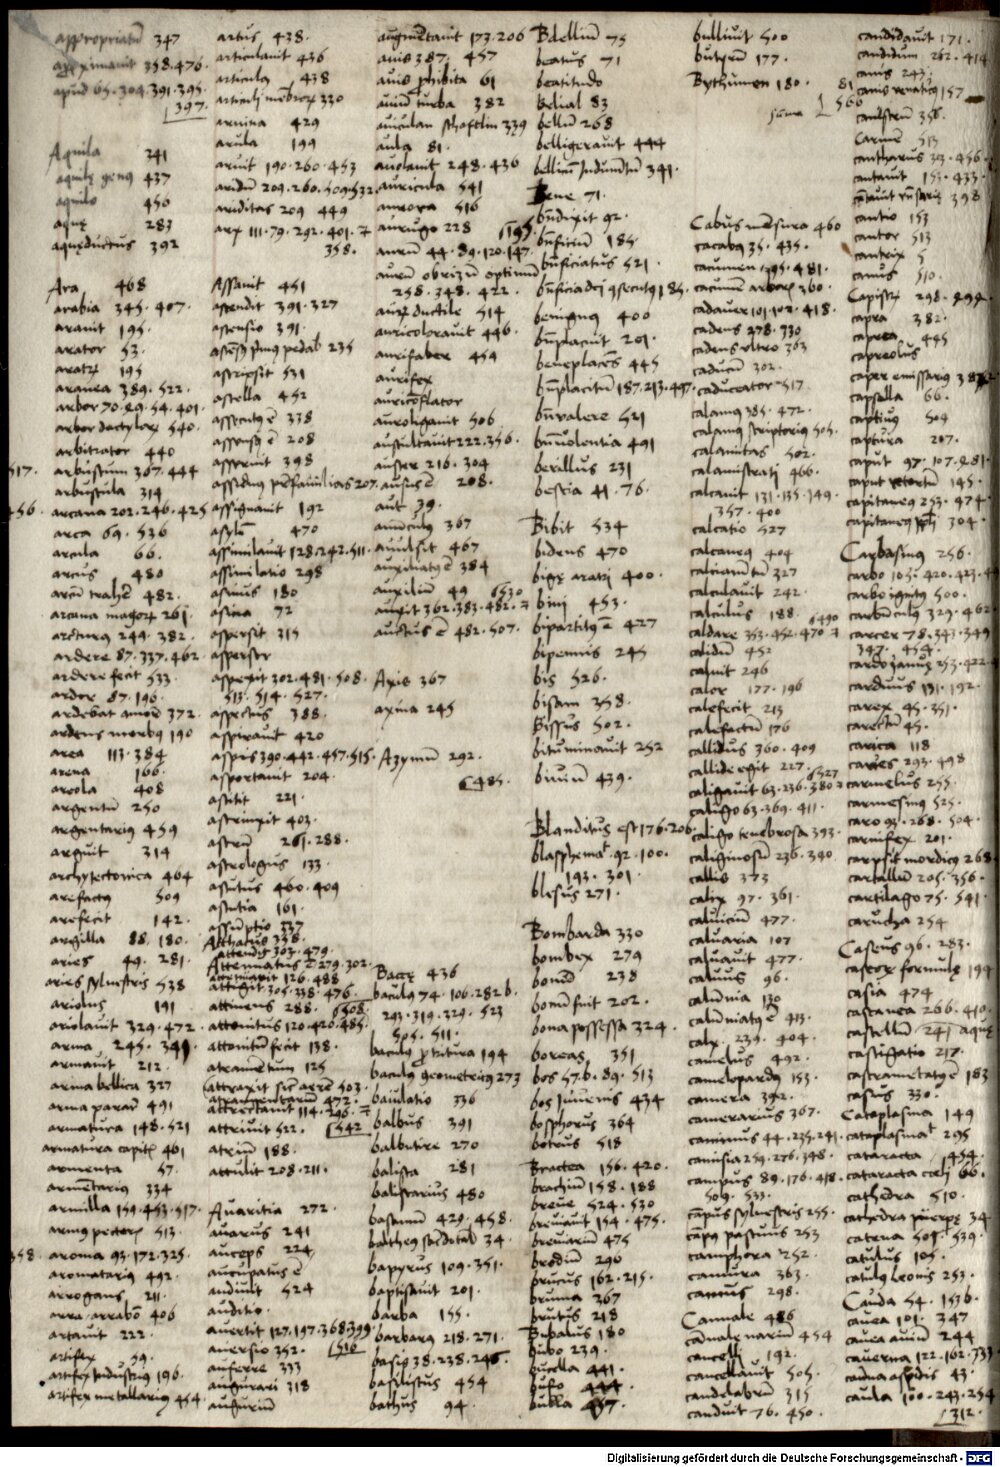 appropriatū 347
approximauit 358.476.
apud 65.304.391.395.
397.
Aquila 341
aquilę genꝰ 437
aquilo 450
aquę 283
aquęductus 392
Ara 468
arabia 345.407.
arauit 195.
arator 53.
aratrū 195
aranea 389.522.
arbor 70.29.54.401.
arbor dactylorū 540.
arbitrator 440
517. arbustum 367.444
arbustula 314
456. arcana 202.246.425
arca 69.536
arcula 66.
arcus 480
arcū trahēs 482.
arcturus 249.382.
ardere 87.337.462
ardere fecit 533
ardor 87.196.
ardebat amore 372.
ardens morbus 190
area 113.384
arena 166.
areola 408
argentū 250
argentarius 459
arguit 314
archytectonica 464
arefactus 509
arefecit 142.
argilla 88.180.
aries 49.281.
aries syluestris 538
ariolus 191
ariolauit 329.472.
arma 245.341.
armauit 212.
arma bellica 327
arma parauit 491
armatura 148.521
armatura capitis 461
armenta 57.
armētarius 334
armilla 159.453.517.
armus pectoris 513.
358. aroma 93.172.325.
aromatarius 492.
arrogans 211.
arra, arrabo 406
artauit 222.
artifex 59.
artifex industrius 196.
artifex metallarius 454.
artus 438.
articulauit 436
articulus 438
articuli mēbrorū 330
aruina 429
arula 199
aruit 190.260.453
aridū 209.260.509.532.
ariditas 209 449
arx 111.79.292.401.
358.
Assauit 451
ascendit 391.327
ascensio 391.
235
ascripsit 531
ascella 452
assecutus ē 338
assensus ē 208
asseruit 398
207.
assignauit 192
asylū 470
assimilauit 128.242.511.
assimilatio 298
asinus 180
asina 72
aspersit 315
aspersor
aspexit 302.481.508.
513.514.527.
aspectus 388.
aspirauit 420
aspis 390.442.457.515.
asportauit 204.
astitit 221.
astrinxit 403.
astrū 261.288.
astrologus 133
astutus 460.409
astutia 161.
assūptio 337
Atthacus 338.
attendit 303.479.
Attenuatus ē 279.302.
attenuauit 126.488
attigit 305.338.476.
attinens 288. 508.
attonitus 120.420.485.
attonitū fecit 138.
atramētum 125
attraxit sic aerē 503.
atramentariū 472.
attrectauit 114.296.
attriuit 522. 542
atriū 188.
attulit 208.211.
Auaritia 272.
auarus 241
auceps 224
aucupatus ē
audiuit 524
auditio.
auertit 127.197.368.399.
auersio 352. 516
auferre 333
augurari 318
auguriū
augmētauit 173.206
auis 387. 457
auis phibita 61
auiū turba 382
339
aula 81.
auolauit 248.436
auricula 541
aurora 516
aurugo 228 195.
aurū 44.89.120.147.
aurū obrizū optimū
258.348.422.
aurū ductile 514
auricolorauit 446.
aurifaber 454
aurifex
auriconflator
auroligauit 506
auscultauit 222.356.
auster 216.304
ausus ē 208.
aut 39.
auūculus 367
auulsit 467
auxiliatus ē 384
auxiliū 49 530
auxit 362.383.482.
auctus ē 482.507.
Axis 367
axina 245
Azymū 292.
485.
Baccę 436
baculus 74.106.282 b.
293.319.329.523
505.511.
194
baculus geometricus 273
baiulatio 336
balbus 391
balbutire 270
balista 281
balistarius 480
basiū 429.458.
34.
papyrus 109.351.
baptisauit 201.
barba 155.
barbarus 218.271.
basis 38.238.246.
basilistus 454
bathus 94.
Bdelliū 75
beatus 71
beatitudo
Belial 83
bellū 268
belligerauit 444
341.
Bene 71.
bn̄dixit 92.
bn̄ficiū 185.
bn̄ficiatus 521.
185.
benignus 400
bn̄placuit 201.
beneplacēs 445
bn̄placitū 187.213.497.
bn̄ualere 521
bn̄uolentia 491
berillus 231
bestia 41.76.
Bibit 534
bidens 470
bigę aratri 400.
bini 453.
bipartitus ē 427
bipennis 245
bis 526.
bisam 358.
Bissus 502.
bituminauit 252
biuiū 439.
Blanditus est 176.206.
blasphemauit 92.100.
193.301.
blesus 271.
Bombarda 330
bombex 279
bonū 238
bonū fuit 202.
bona possessa 324.
boreas 351
bos 57.b.89.513
bos iuuenis 434
bosphorus 364
botrus 518
Bractea 156.420.
brachiū 158.188
breue 524.530
breuiauit 154.475.
breuiariū 475
brodiū 290
brucus 162.215.
bruma 367
brutus 218
Bubalus 180
bubo 239.
bucella 441.
bufo 444.
bulla 457.
bulliuit 500
butyrū 177.
Bythumen 180. 81
suma 560
Cabus mēsura 460
cacabus 35.435.
cacumen 195.481.
cacumē arboris 360.
cadauer 101.102.418.
cadens 278.330
cadens ultro 363
caducū 302.
caduceator 517.
calamus 385.472.
calamus scriptorius 505.
calamitas 502.
calamistrati 466.
calcauit 131.135.149.
357.400
calcatio 527
calcaneus 404
calciamētū 327
calculauit 242.
calculus 188. 490
caldare 353.452.470
calidū 452
caluit 246
calor 177.196
calefecit 213
calefactū 176
callidus 360.409
callide egit 227. 527
caligauit 63.236.380
caligo 63.369.411.
caligo tenebrosa 393.
caliginosū 236.390.
callis 373
calix 97.361.
caluiciū 477.
caluaria 107
caluauit 477.
caluus 96.
calūnia 130
calūniatus ē 413.
calx. 239.404.
camelus 492.
camelopardus 153.
camera 392.
camerarius 367.
caminus 44.235.241.
camisia 259.276.348.
campus 89.176.418.
509.533.
cāpus syluestris 255.
cāpus pascuus 253
camphora 252.
camura 363.
camus 298.
Cannale 486
cānale nariū 454
cancelli 192.
cancellauit 505.
candelabrū 315
canduit 76.450.
candidauit 171.
candidum 262.414
canis 243.
canis venaticus 157
canistrū 358.
Carmē 513
cantharus 33.456.
cantauit 153.433.
398
cantio 153
cantor 513
cantrix 5
canus 510.
Capistrū 298.292.
capra 382.
caprea 445
capreolus
caper emissarius 382
capsella 66.
captiuus 509
captura 207.
caput 97.107.281.
caput retortū 145.
capitaneus 253.474
304.
Carbasinus 256.
carbo 105.420.423.
carbo ignitus 500.
carbūculus 329.462
carcer 78.343.349
347.454.
cardo ianuę 253.422.
carduus 131.192.
carex 45.351.
carectū 45.
carica 118
caries 293.498
carmelus 255.
carmesinus 525.
caro 93.268.504.
carnifex 201.
carpsit mordicus 268
cartallū 205.356.
cartilago 75.541.
carucha 254
Caseus 96.283.
194
casia 474
castanea 266.410.
castellū 241 aquę
castigatio 217.
castrametatus ē 183
casus 330.
Cataplasma 149
cataplasmauit 295
cataracta 454.
cataracta cœli 66.
cathedra 510.
34
catena 501.539.
catulus 105.
catulus leonis 253.
Cauda 54.153 b.
cauea 101.347
cauea auiū 244
cauerna 122.162.333
43.
caula 100.243.254
312.
Digitalisierung gefördert durch die Deutsche Forschungsgemeinschaft - DFG